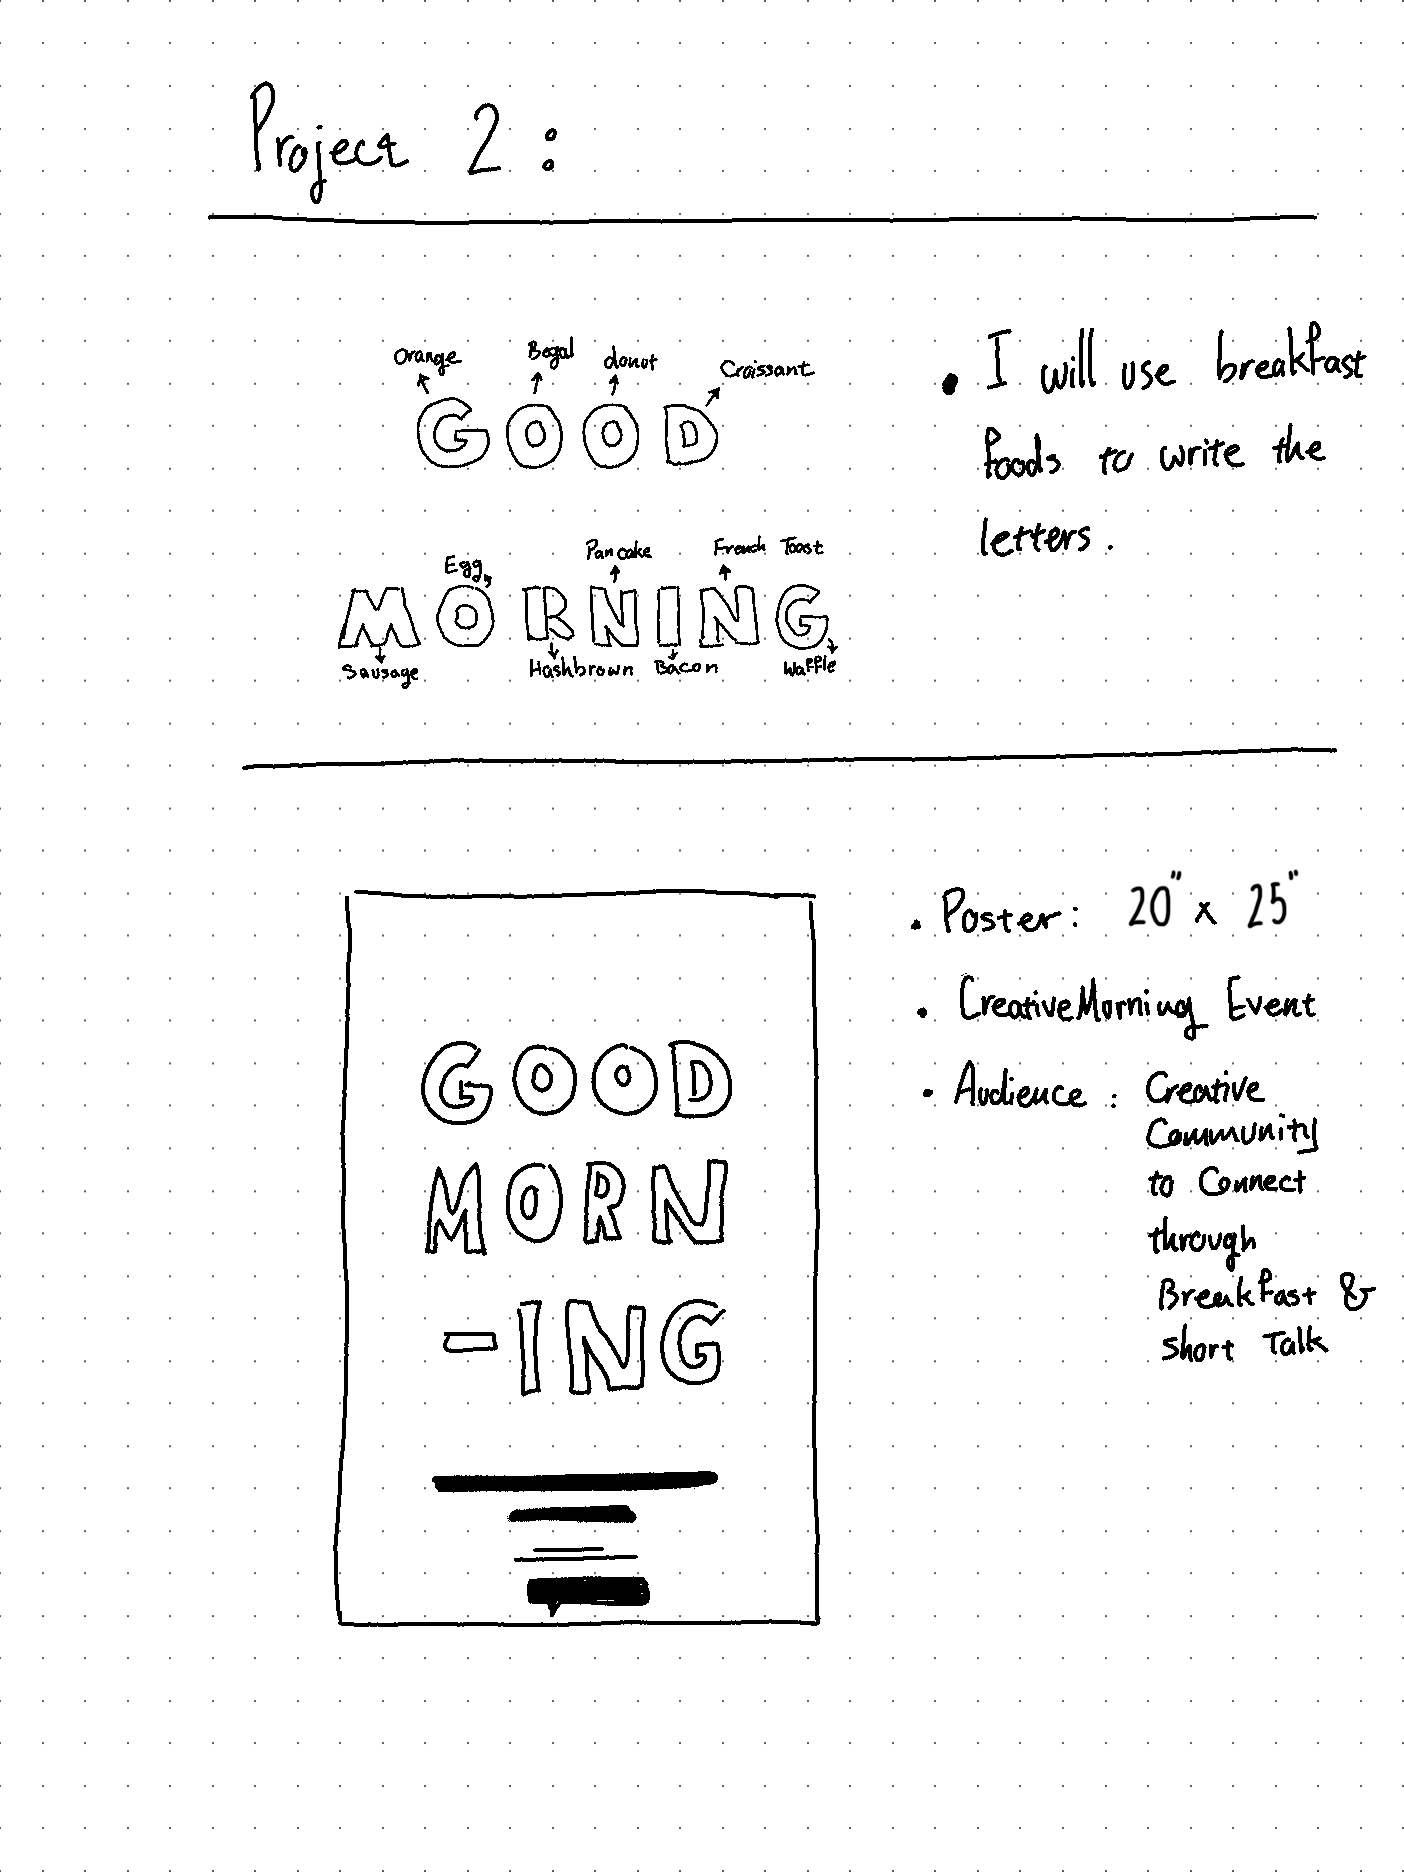 Project 2 :
Orange Bagal donut Craissant
GOOD
Egg Pancake French Toast
MORNING
Sausage Hashbrown Bacon Waffle
• I will use breakfast
foods to write the
letters.
GOOD
MORN
-ING
• Poster: 20" x 25"
• CreativeMorning Event
• Audience : Creative
Community
to Connect
through
Breakfast &
Short Talk